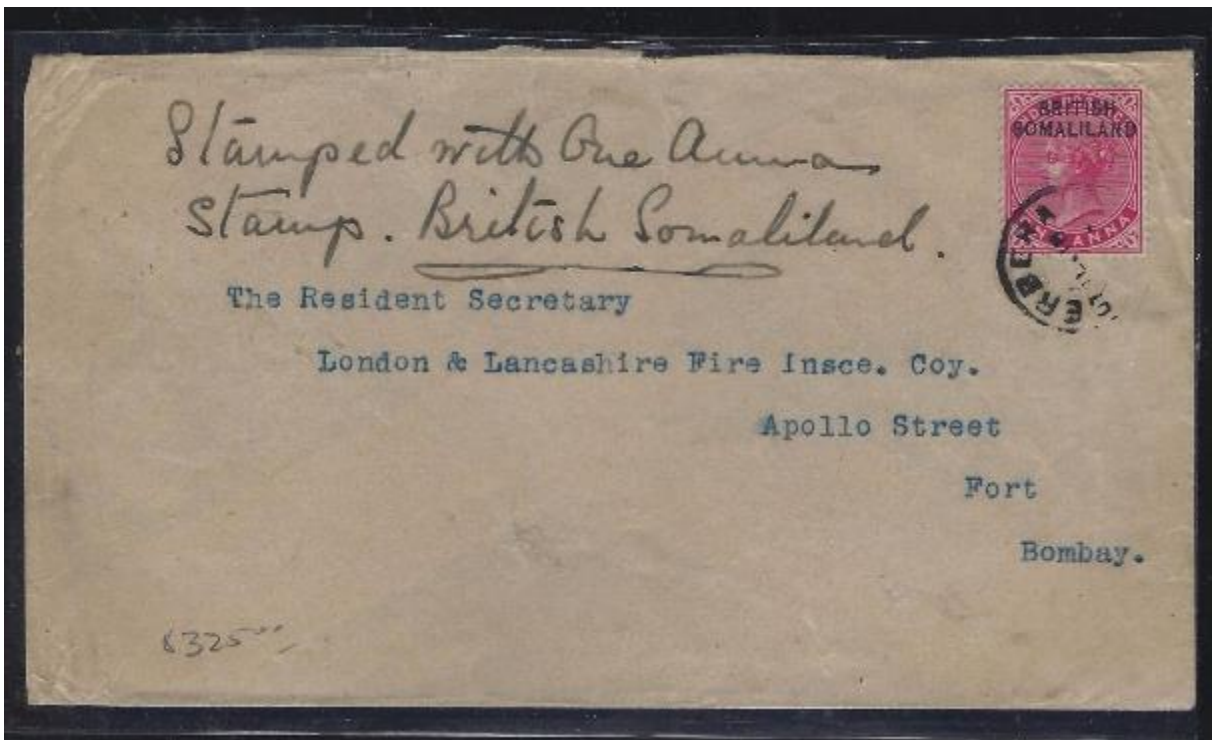 Stamped with One Anna
Stamp. British Somaliland.
BRITISH
SOMALILAND
ANNA
BERBERA
The Resident Secretary
London & Lancashire Fire Insce. Coy.
Apollo Street
Fort
Bombay.